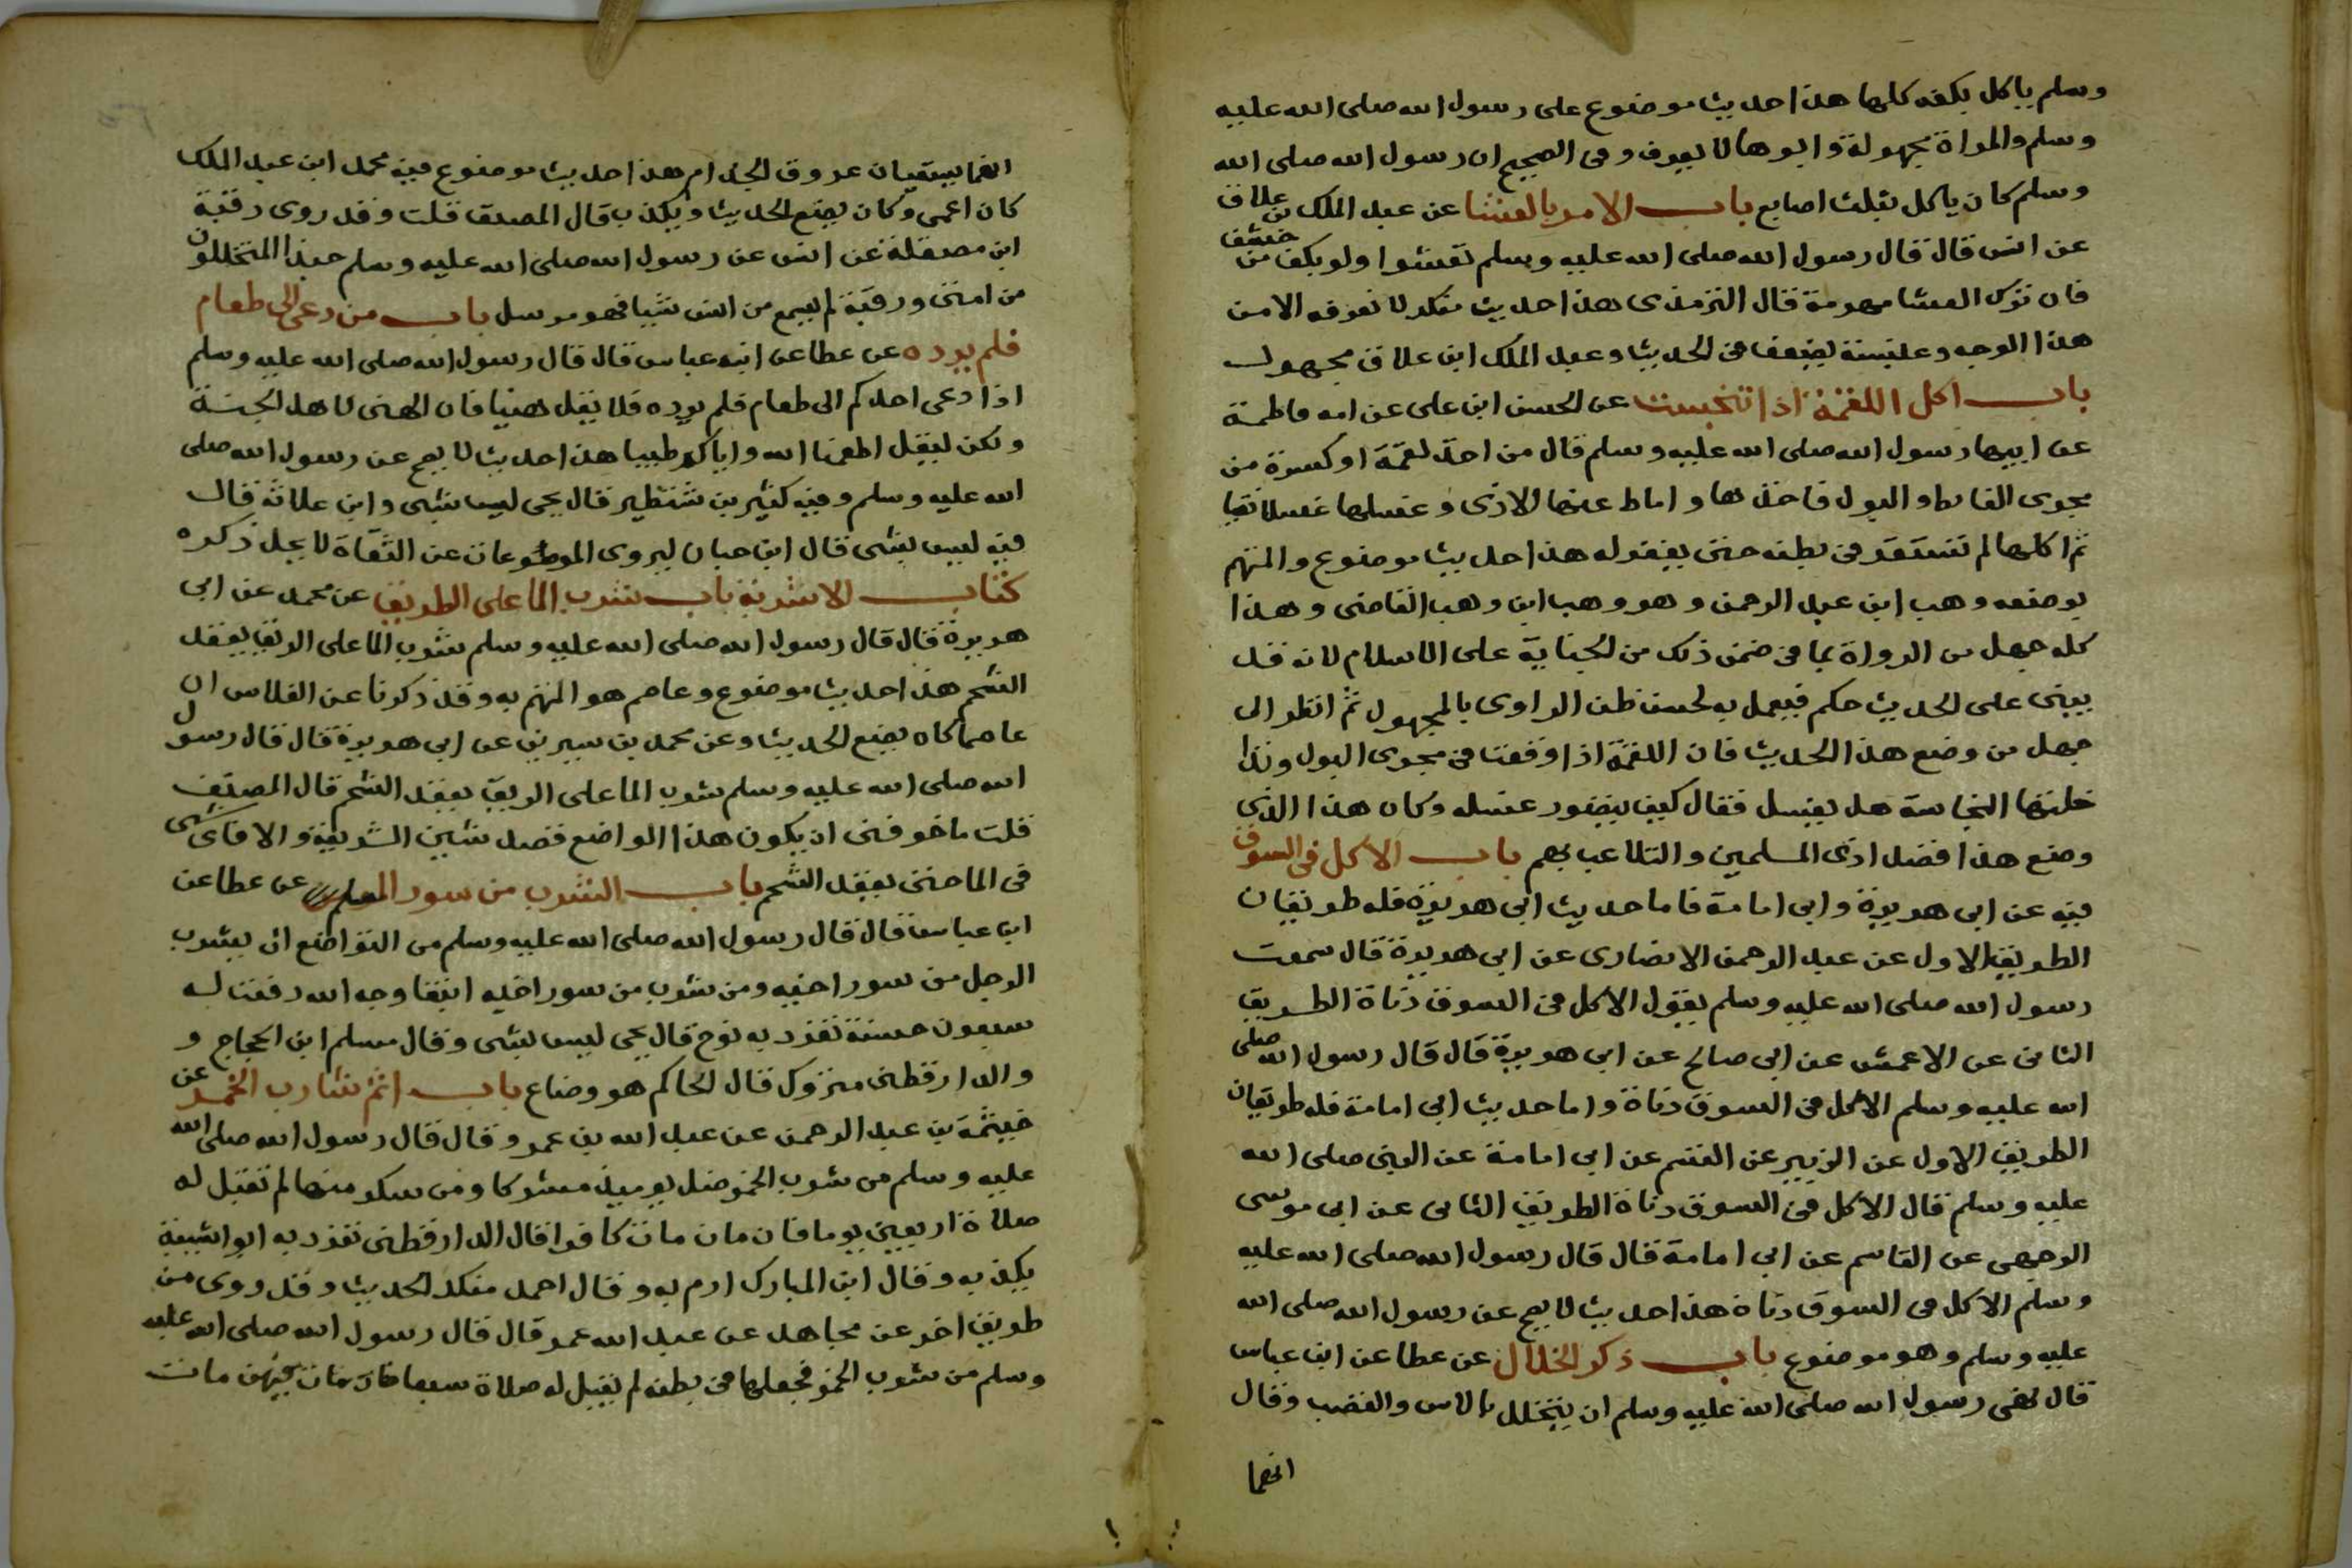 وسلم ياكل بكفه كلها هذا حديث موضوع على رسول الله صلى الله عليه
وسلم والمراة مجهولة وابوها لا يعرف وفى الصحيح ان رسول الله صلى الله
وسلم كان ياكل بثلث اصابع باب الامر بالعشا عن عبد الملك بن علاق
عن انس قال قال رسول الله صلى الله عليه وسلم تعشوا ولو بكف من حشف
فان ترك العشا مهرمة قال الترمذى هذا حديث منكر لا نعرفه الا من
هذا الوجه وعنبسة يضعف فى الحديث وعبد الملك ابن علاق مجهول
باب اكل اللقمة اذا تنجست عن الحسن ابن على عن امه فاطمة
عن ابيها رسول الله صلى الله عليه وسلم قال من اخذ لقمة او كسرة من
مجرى الغائط والبول فاخذها واماط عنها الاذى وغسلها غسلا نقيا
ثم اكلها لم تستقر فى بطنه حتى يغفر له هذا حديث موضوع والمتهم
بوضعه وهب ابن عبد الرحمن وهو وهب ابن وهب القاضى وهذا
كله جهل من الرواة بما فى ضمن ذلك من الجناية على الاسلام لانه قد
يبنى على الحديث حكم فيعمل به لحسن ظن الراوى بالمجهول ثم انظر الى
جهل من وضع هذا الحديث فان اللقمة اذا وقعت فى مجرى البول وتدا
خلتها النجاسة هل يغسل فقال كيف يتصور غسله وكان هذا الذى
وضع هذا قصد اذى المسلمين والتلاعب بهم باب الاكل فى السوق
فيه عن ابى هريرة وابى امامة فاما حديث ابى هريرة فله طريقان
الطريق الاول عن عبد الرحمن الانصارى عن ابى هريرة قال سمعت
رسول الله صلى الله عليه وسلم يقول الاكل فى السوق دناة الطريق
الثانى عن الاعمش عن ابى صالح عن ابى هريرة قال قال رسول الله صلى
الله عليه وسلم الاكل فى السوق دناة واما حديث ابى امامة فله طريقان
الطريق الاول عن الزبير عن القسم عن ابى امامة عن النبى صلى الله
عليه وسلم قال الاكل فى السوق دناة الطريق الثانى عن ابى موسى
الوجهى عن القاسم عن ابى امامة قال قال رسول الله صلى الله عليه
وسلم الاكل فى السوق دناة هذا حديث لا يصح عن رسول الله صلى الله
عليه وسلم وهو موضوع باب ذكر الخلال عن عطا عن ابن عباس
قال نهى رسول الله صلى الله عليه وسلم ان يتخلل بالاس والقضب وقال
انهما
انهما يسقيان عروق الجذام هذا حديث موضوع فيه محمد ابن عبد الملك
كان اعمى وكان يضع الحديث ويكذب قال المصنف قلت وقد روى رقبة
ابن مصقلة عن انس عن رسول الله صلى الله عليه وسلم حبذا المتخللون
من امتى ورقبة لم يسمع من انس شيا فهو مرسل باب من دعى الى طعام
فلم يرده عن عطا عن ابن عباس قال قال رسول الله صلى الله عليه وسلم
اذا دعى احدكم الى طعام فلم يرده فلا يقل هنيا فان الهنى لاهل الجنة
ولكن ليقل اطعمنا الله واياكم طيبا هذا حديث لا يصح عن رسول الله صلى
الله عليه وسلم وفيه كثير بن شنظير قال يحى ليس بشى وابن علاثة قال
فيه ليس بشى قال ابن حبان يروى الموضوعات عن الثقاة لا يحل ذكره
كتاب الاشربة باب شرب الما على الطريق عن محمد عن ابى
هريرة قال قال رسول الله صلى الله عليه وسلم شرب الما على الريق يعقد
الشحم هذا حديث موضوع وعاصم هو المتهم به وقد ذكرنا عن الفلاس ان
عاصما كان يضع الحديث وعن محمد بن سيرين عن ابى هريرة قال قال رسول
الله صلى الله عليه وسلم شرب الما على الريق يعقد الشحم قال المصنف
قلت ما خوفنى ان يكون هذا الواضع قصد شين الشريعة والا فاى شى
فى الما حتى يعقد الشحم باب الشرب من سور المسلم عن عطا عن
ابن عباس قال قال رسول الله صلى الله عليه وسلم من التواضع ان يشرب
الرجل من سور اخيه ومن شرب من سور اخيه ابتغا وجه الله رفعت له
سبعون حسنة تفرد به نوح قال يحى ليس بشى وقال مسلم ابن الحجاج و
والدارقطنى متروك قال الحاكم هو وضاع باب اثم شارب الخمر عن
خيثمة بن عبد الرحمن عن عبد الله بن عمرو قال قال رسول الله صلى الله
عليه وسلم من شرب الخمر ضل يوميذ مشركا ومن سكر منها لم تقبل له
صلاة اربعين يوما فان مات مات كافرا قال الدارقطنى تفرد به ابو شيبة
يكذبه وقال ابن المبارك ارم به وقال احمد منكر الحديث وقد روى من
طريق اخر عن مجاهد عن عبد الله عمر قال قال رسول الله صلى الله عليه
وسلم من شرب الخمر فجعلها فى بطنه لم يقبل له صلاة سبعا فان مات فيهن مات